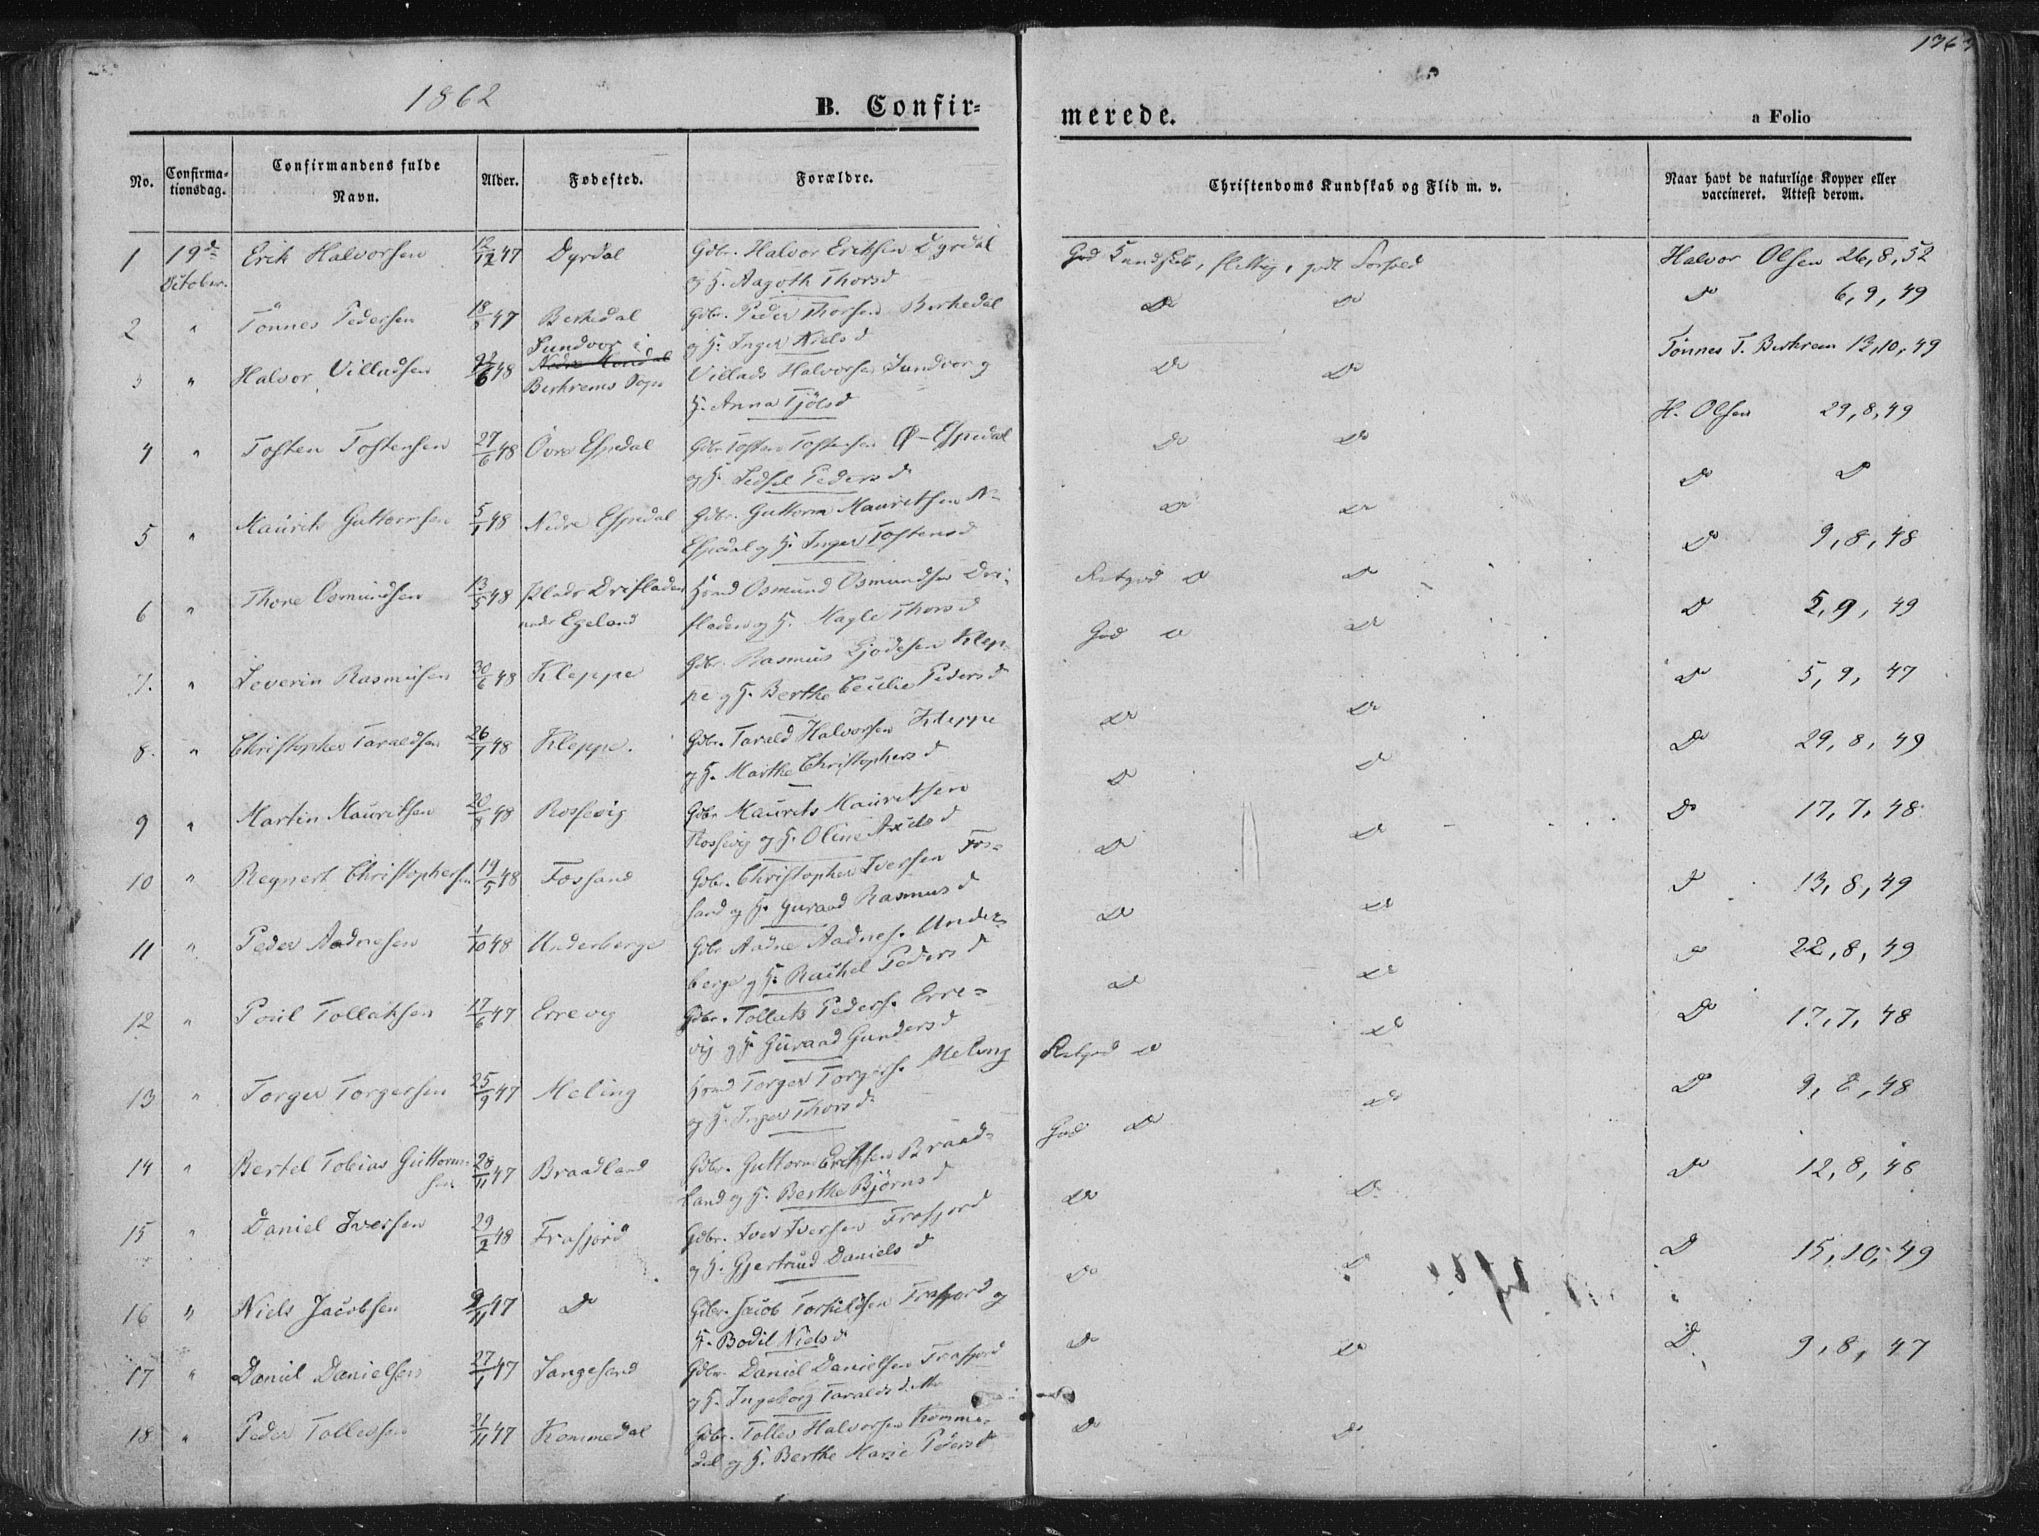 1862
B. Confirmerede.
a Folio
No.
Confirmationsdag.
Confirmandens fulde Navn.
Alder.
Fødested.
Forældre.
Christendoms Kundskab og Flid m. v.
Naar havt de naturlige Kopper eller vaccineret. Attest derom.
1 19d October. Erik Halvorsen 12/12 47 Dyrdal Gdbr. Halvor Eriksen Dyrdal God Kundskab, flittig, godt Forhold Halvor Olsen 26, 8, 52
og H. Aagoth Thorsd
2 " Tønnes Pedersen 18/5 47 Berkedal Gdbr. Peder Thorsen Berkedal Do Do Do 6, 9, 49
og H. Inger Nielsd
3 " Halvor Villadsen 6 48 Sundvor i Villads Halvorsen Sundvor og Do Do Tønnes T. Berkrem 13, 10, 49
Berkrems Sogn H. Anna Tjølsd
4 " Tosten Tostensen 27/6 48 Øvre Espedal Gdbr Tosten Tostensen Ø-Espedal Do Do H. Olsen 29, 8, 49
og H. Sedsel Pedersd
5 " Maurits Guttormsen 5/1 48 Nedre Espedal Gdbr. Guttorm Mauritsen N- Do Do Do Do
Espedal og H. Inger Tostensd
6 " Thore Osmundsen 13/5 48 Plads Drefladen Hsmd Osmund Osmundsen Dre- Retgod Do Do Do 9, 8, 48
under Egeland fladen og H. Magle Thorsd
7. " Severin Rasmusen 30/6 48 Kleppe Gdbr. Rasmus Gjødesen Klep- God Do Do Do 5, 9, 49
pe og H. Berthe Cecilie Pedersd
8. " Christopher Taraldsen 26/1 48 Kleppe. Gdbr. Tarald Halvorsen Kleppe Do Do Do 5, 9, 47
og H. Marthe Christophersd
9 " Martin Mauritsen 20/8 48 Rossevig Gdbr Maurits Mauritsen Do Do Do 29, 8, 49
Rossevig og H. Oline Axelsd
10 " Regnert Christophersen 19/5 48 Fossand Gdbr. Christopher Iversen Fos- Do Do Do 17, 7, 48
sand og H. Guraad Rasmusd
11 " Peder Aadnesen 1/10 48 Underberge Gdbr Aadne Aadnes. Under- Do Do Do 13, 8, 49
berge og H. Rachel Pedersd
12 " Poul Tollaksen 17/6 47 Errevig Gdbr. Tollak Peders. Erre- Do Do Do 22, 8, 49
vig og H. Guraad Gundersd
13 " Torger Torgersen 25/9 47 Meling Hsmd Torger Torgers. Meling Retgod Do Do Do 17, 7, 48
og H. Inger Thorsd
14 " Bertel Tobias Guttormsen 28/11 47 Braadland Gdbr. Guttorm Eriksen Braad- God Do Do Do 9, 8, 48
land og H. Berthe Bjørnsd
15 " Daniel Iversen 29/2 48 Frafjord Gdbr. Iver Iversen Frafjord Do Do Do 12, 8, 48
og H. Gjertrud Danielsd
16 " Niels Jacobsen 9/11 47 Do Gdbr. Jacob Torkildsen Frafjord og Do Do Do 15, 10, 49
H. Bodil Nielsd
17 " Daniel Danielsen 27/1 47 Langesand Gdbr. Daniel Danielsen Frafjord Do Do Do 9, 8, 47
og H. Ingeborg Taraldsdatter
18 " Peder Tollefsen 21/11 47 Kommedal Gdbr. Tollev Halvorsen Komme- Do Do
dal og H. Berthe Marie Pedersd